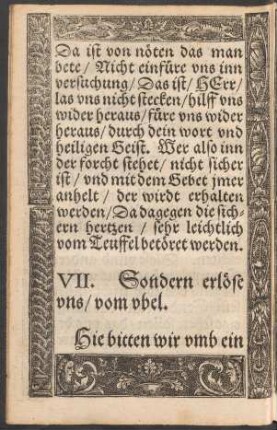 Da ist von nöten das man
bete / Nicht einfüre vns inn
versuchung / Das ist / HErr /
las vns nicht stecken / hilff vns
wider heraus / füre vns wider
heraus / durch dein wort vnd
heiligen Geist. Wer also inn
der forcht stehet / nicht sicher
ist / vnd mit dem Gebet jmer
anhelt / der wirdt erhalten
werden / Da dagegen die sich-
ern hertzen / sehr leichtlich
vom Teuffel betöret werden.
VII. Sondern erlöse
vns / vom vbel.
Hie bitten wir vmb ein